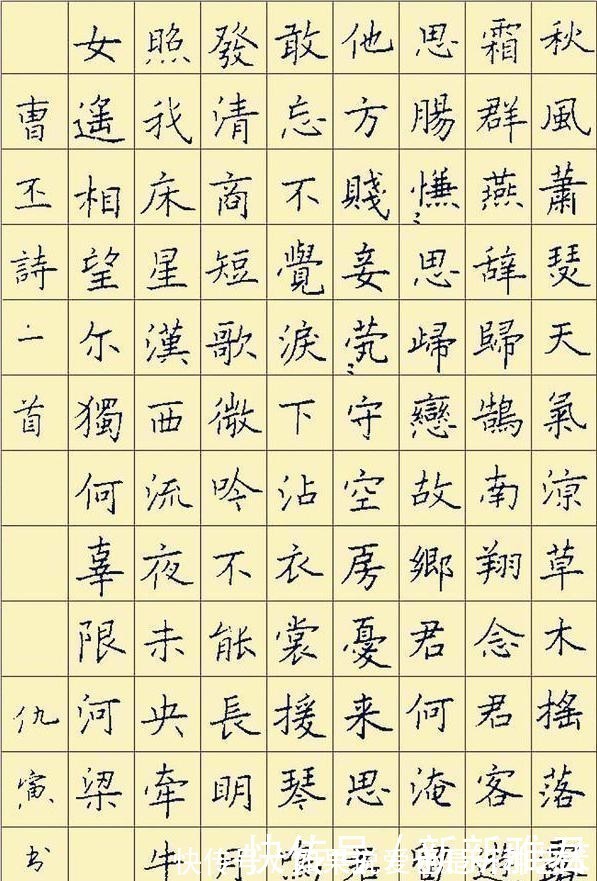 秋風蕭瑟天氣涼草木搖落
霜群燕辞歸鵠南翔念君客
思腸慊〻思歸戀故鄉君何淹
他方賤妾茕〻守空房憂来思
敢忘不覺淚下沾衣裳援琴
發清商短歌微吟不能長明月
照我床星漢西流夜未央牽牛
女遙相望尔獨何辜限河梁
曹丕詩一首
仇寅书